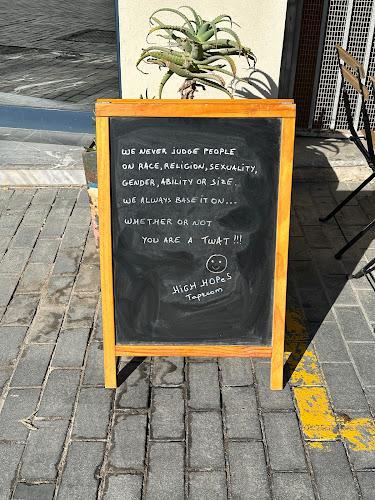 WE NEVER JUDGE PEOPLE
ON RACE, RELIGION, SEXUALITY,
GENDER, ABILITY OR SIZE.
WE ALWAYS BASE IT ON...
WHETHER OR NOT
YOU ARE A TWAT !!!
HIGH HOPES